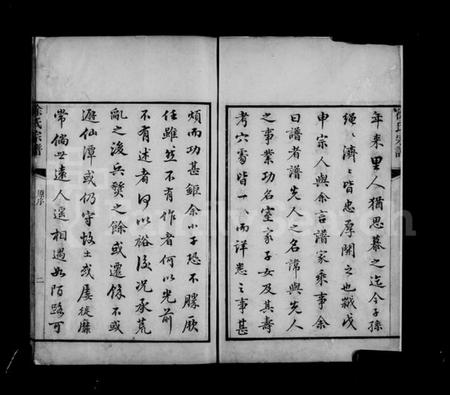 年来里人猶思慕之迄今子孫
繩〻濟〻皆忠厚開之也歲戊
申宗人與余言譜家乗事余
曰譜者譜先人之名諱與先人
之事業功名室家子女及其壽
考穴處皆一一而詳悉之事甚
煩而功甚鉅余小子恐不勝厥
任雖然不有作者何以光前
不有述者何以裕後况承荒
亂之後兵燹之餘或遷徙或
避仙潭或仍守故土或屡徙靡
常倘世遠人遥相遇如陌路可
徐氏宗譜
原序
二